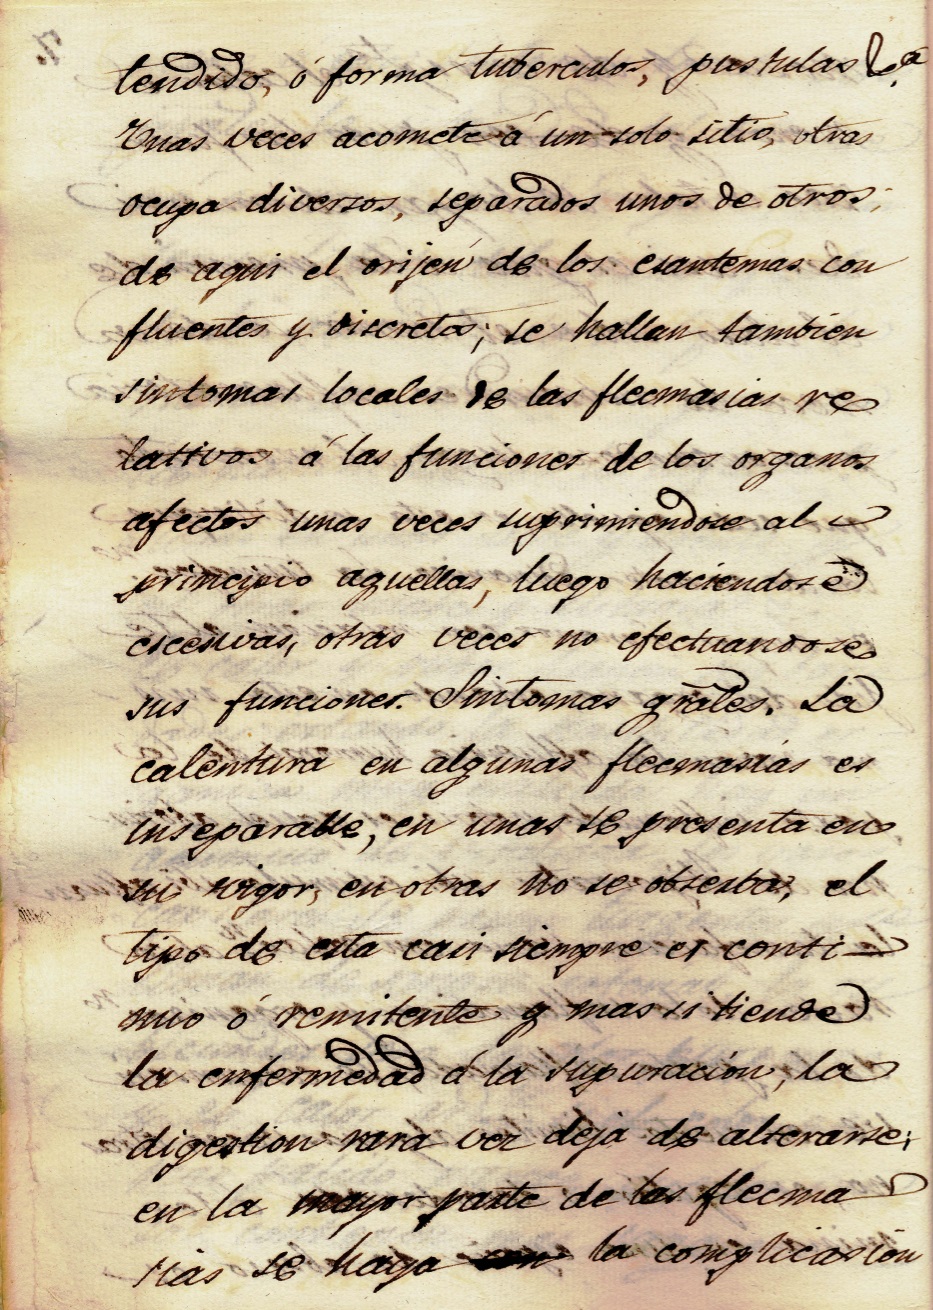 tendido, ó forma tuberculos, pustulas &.ª
Unas veces acomete á un solo sitio, otras
ocupa diversos, separados unos de otros;
de aqui el orijen de los esantemas con
fluentes y discretos; se hallan tambien
sintomas locales de las flecmasias re
lativos á las funciones de los organos
afectos unas veces suprimiendose al
principio aquellas, luego haciendose
escesivas, otras veces no efectuandose
sus funciones. Sintomas grales. La
calentura en algunas flecmasias es
inseparable, en unas se presenta en
su vigor, en otras no se obserba; el
tipo de esta casi siempre es conti-
nuo ó remitente y mas si tiende
la enfermedad á la supuración, la
digestion rara vez deja de alterarse;
en la mayor parte de las flecma
sias se haya la complicasion